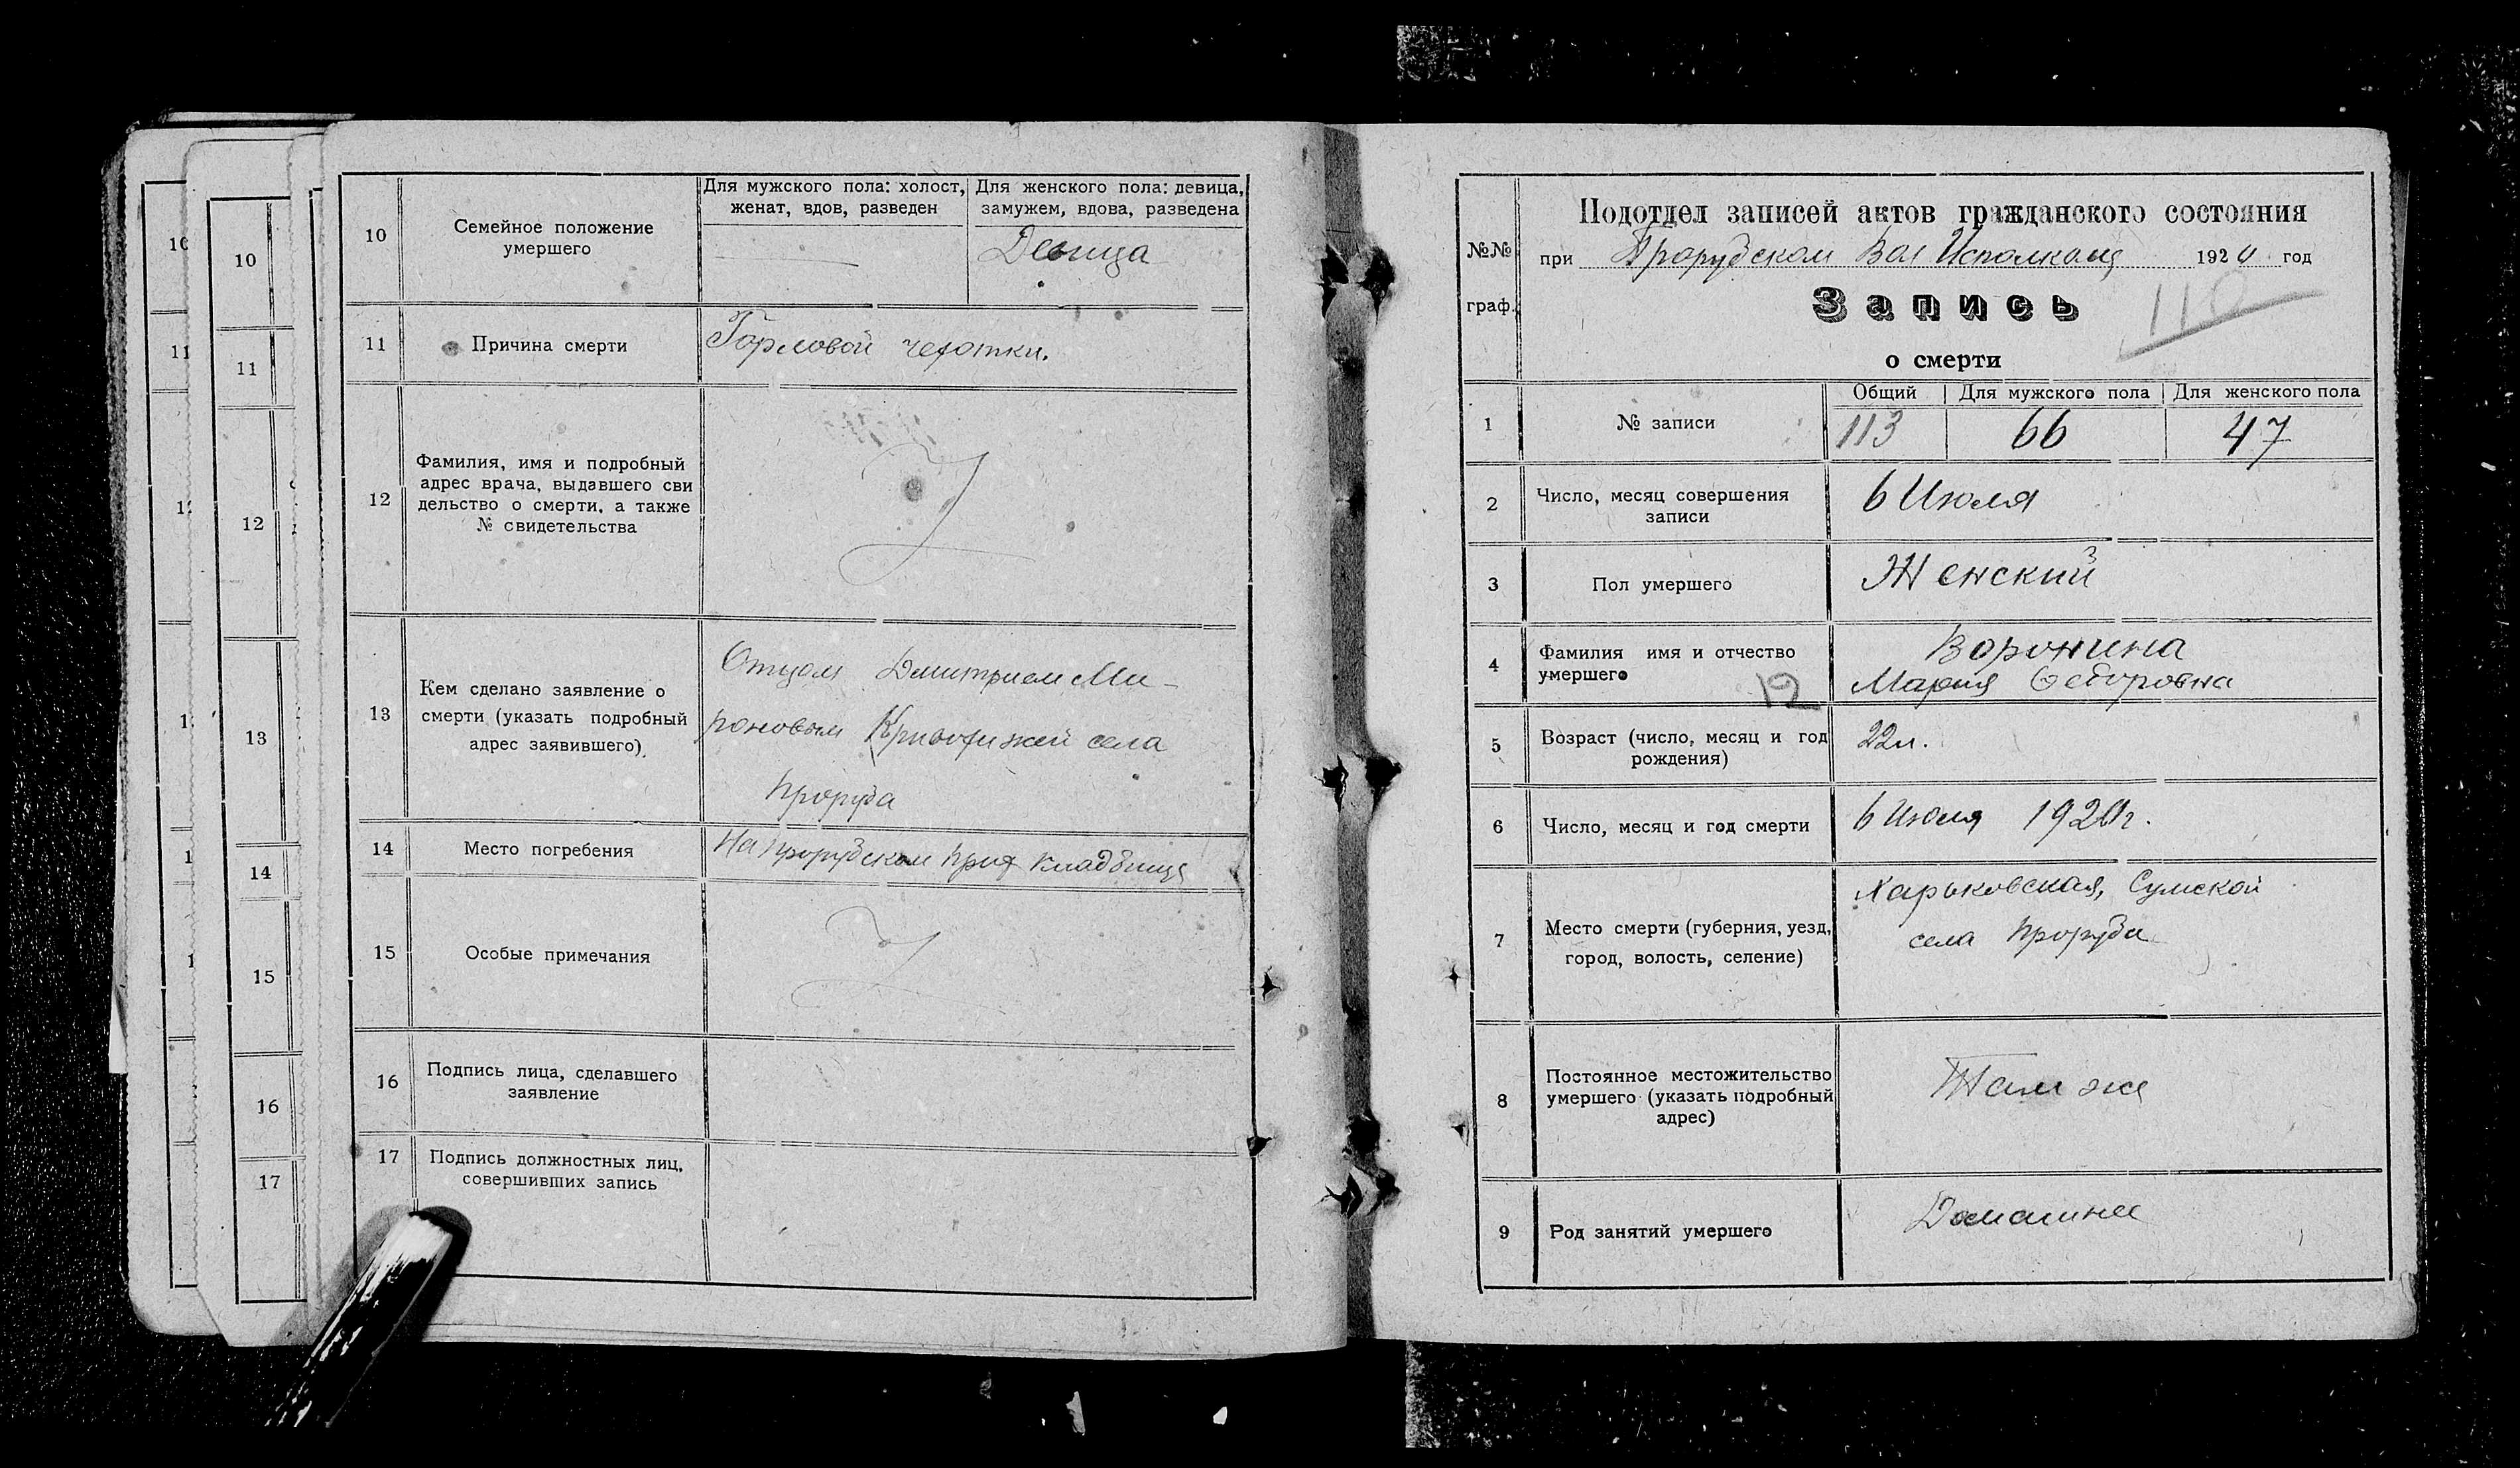 10
11
10
11
12
13
14
15
16
17
10
Семейное положение
умершего
Для мужского пола: холост,
женат, вдов, разведен
Для женского пола: девица,
замужем, вдова, разведена
Девица
11
Причина смерти
Горловой чехотки.
12
Фамилия, имя и подробный
адрес врача, выдавшего сви
дельство о смерти, а также
№ свидетельства
13
Кем сделано заявление о
смерти (указать подробный
адрес заявившего)
Отцом Дмитрием Ми-
роновым села
Проруба
14
Место погребения
На Прорубском прих кладбище
15
Особые примечания
16
Подпись лица, сделавшего
заявление
17
Подпись должностных лиц,
совершивших запись
№№
граф.
Подотдел записей актов гражданского состояния
при Прорубском Вол Исполкоме 1920 год
Запись
о смерти
1
№ записи
Общий
Для мужского пола
Для женского пола
113
66
47
2
Число, месяц совершения
записи
6 Июля
3
Пол умершего
Женский
4
Фамилия имя и отчество
умершего
12
Воронина
Мария Федоровна
5
Возраст (число, месяц и год
рождения)
22л.
6
Число, месяц и год смерти
6 Июля 1920г.
7
Место смерти (губерния, уезд,
город, волость, селение)
Харьковская, Сумской
села Проруба
8
Постоянное местожительство
умершего (указать подробный
адрес)
Там же
9
Род занятий умершего
Домашнее